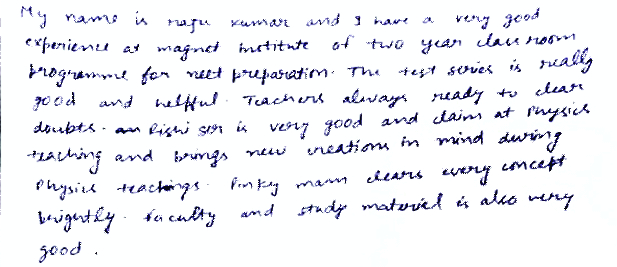 My name is raju kumar and I have a very good
experience at magnet institute of two year class room
programme for neet preparation. The test series is really
good and helpful. Teachers always ready to clear
doubts. Rishi ser is very good and claim at Physics
teaching and brings new creations in mind during
Physics teachings. Pinky mam clears every concept
brigently. faculty and study material is also very
good.